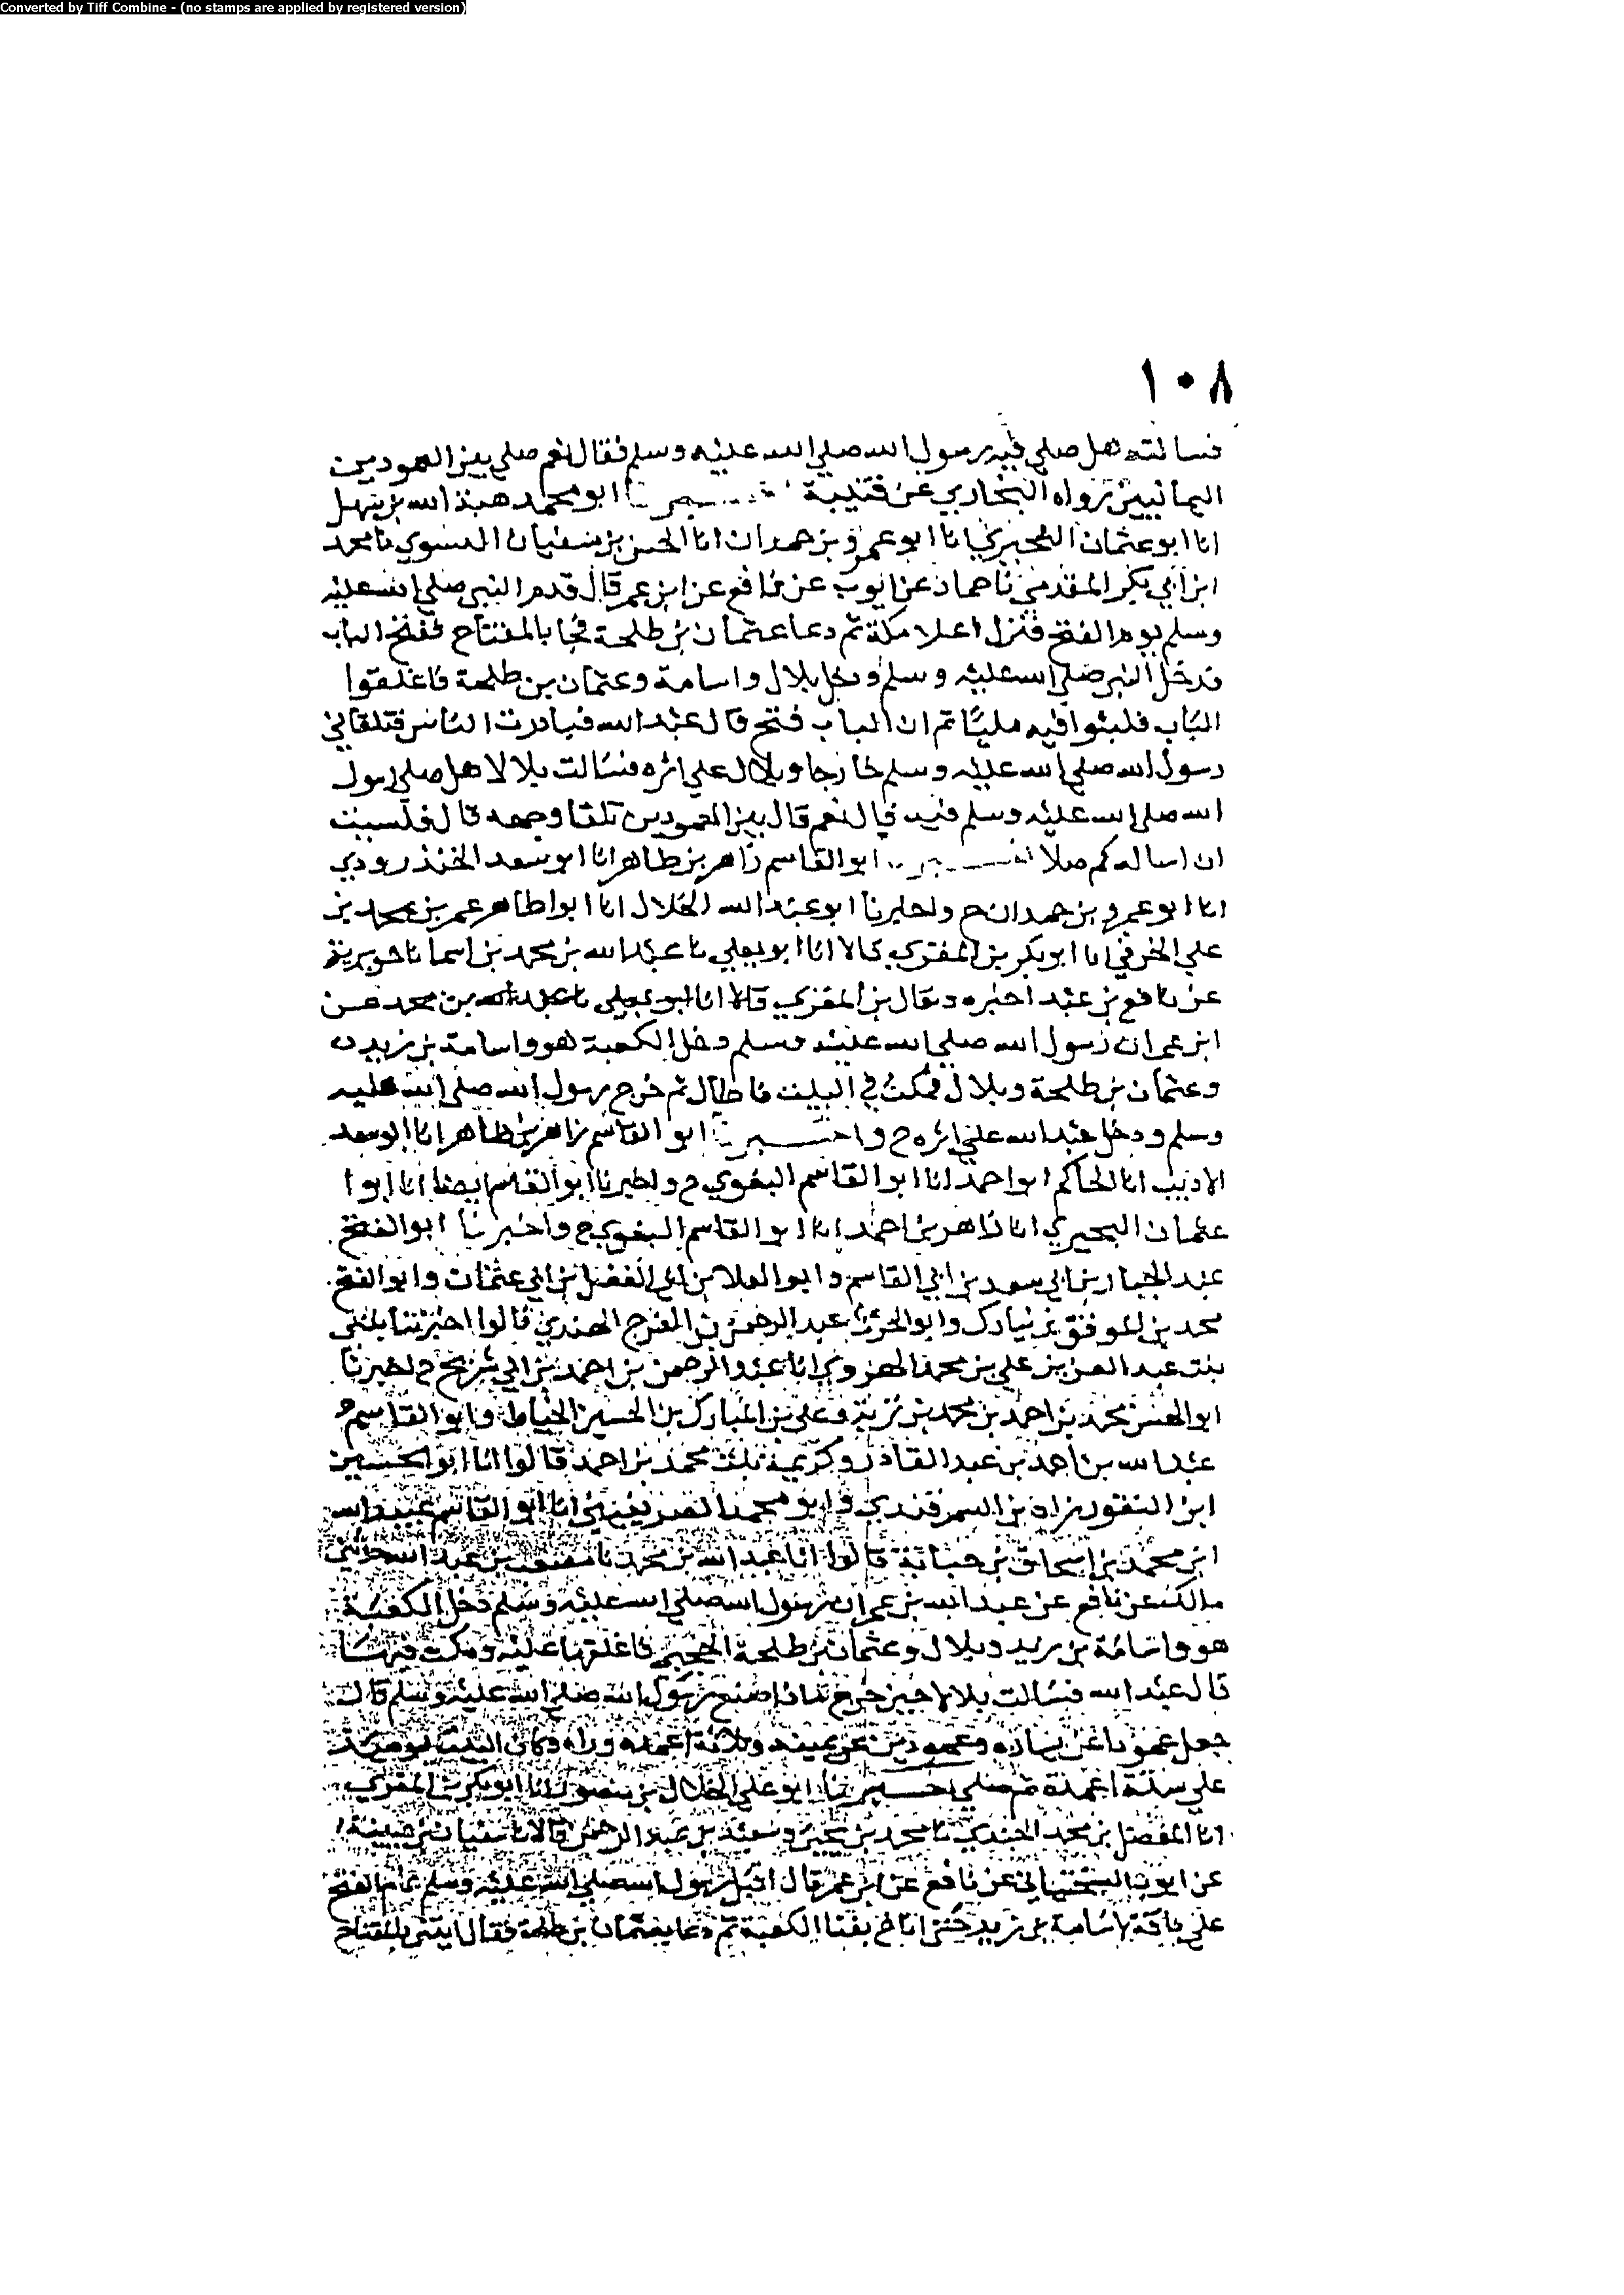 Converted by Tiff Combine - (no stamps are applied by registered version)
١٠٨
فسالته هل صلى فيه رسول الله صلى الله عليه وسلم فقال نعم صلى بين العمودين
اليمانيين رواه البخاري عن قتيبة ابو محمد هبة الله بن سهل
انا ابو عثمان البحيري انا ابو عمرو بن حمدان انا الحسن بن سفيان النسوي نا محمد
ابن ابي بكر المقدمي نا حماد عن ايوب عن نافع عن ابن عمر قال قدم النبي صلى الله عليه
وسلم يوم الفتح فنزل اعلا مكة ثم دعا عثمان بن طلحة فجا بالمفتاح ففتح الباب
فدخل النبي صلى الله عليه وسلم ودخل بلال واسامة وعثمان بن طلحة فاغلقوا
الباب فلبثوا فيه مليا ثم ان الباب فتح قال عبد الله فبادرت الناس فتلقاني
رسول الله صلى الله عليه وسلم خارجا وبلال على اثره فسالت بلالا هل صلى رسول
الله صلى الله عليه وسلم فيه قال نعم قال بين العمودين تلقا وجهه قال فنسيت
ان اساله كم صلا ابو القاسم زاهر بن طاهر انا ابو سعد الخنذرودي
انا ابو عمرو بن حمدان ح واخبرنا ابو عبد الله الخلال انا ابوا طاهر عمر بن محمد بن
علي الخرقي انا ابو بكر بن المقري قالا انا ابو يعلي نا عبد الله بن محمد بن اسما نا جويرية
عن نافع بن عبد اخبره وقال بن المقري قالا انا ابو يعلى نا عبد الله بن محمد عن
ابن عمر ان رسول الله صلى الله عليه وسلم دخل الكعبة هو واسامة بن زيد
وعثمان بن طلحة وبلال فمكث في البيت فاطال ثم خرج رسول الله صلى الله عليه
وسلم ودخل عبد الله على اثره ح واخبرنا ابو القاسم زاهر بن طاهر انا ابو سعد
الاديب انا الحاكم ابو احمد انا ابو القاسم البغوي ح واخبرنا ابو القاسم ايضا انا ابوا
عثمان البحيري انا زاهر بن احمد انا ابو القاسم البغوي ح واخبرنا ابو الفتح
عبد الجبار بن ابي سعد بن ابي القاسم وابو العلا بن ابي الفضل بن ابي عثمان وابو الفتح
محمد بن الموفق بن نيارك وابو عبد الرحمن بن المفرج الهندي قالوا اخبرتنا بلبنى
بنت عبد العزيز بن علي بن محمد الهروي انا عبد الرحمن بن احمد بن ابي شريح ح واخبرنا
ابو الحسن محمد بن احمد بن محمد بن توبة وعلي بن المبارك بن الحسين الخياط وابو القاسم
عبد الله بن احمد بن عبد القادر وكريمة بنت محمد بن احمد قالوا انا ابو الحسين
ابن النقور زاد بن السمرقندي وابو محمد الصريفيني انا ابو القاسم عبيد الله
ابن محمد بن اسحاق بن حبابة قالوا انا عبد الله بن محمد نا مصعب بن عبد الله حدثني
مالك عن نافع عن عبد الله بن عمر ان رسول الله صلى الله عليه وسلم دخل الكعبة
هو واسامة بن زيد وبلال وعثمان بن طلحة الحجبي فاغلقها عليه ومكث فيها
قال عبد الله فسالت بلالا حين خرج ماذا صنع رسول الله صلى الله عليه وسلم قال
جعل عمودا عن يساره وعمودين عن يمينه وثلاثة اعمدة وراه وكان البيت يومئذ
على ستة اعمدة ثم صلى اخبرنا ابو علي الخلال بن منصور انا ابو بكر بن المقري
انا المفضل بن محمد الجندي نا محمد بن يحيى وسعيد بن عبد الرحمن قالا نا سفيان بن عيينة
عن ايوب السختياني عن نافع عن ابن عمر قال اقبل رسول الله صلى الله عليه وسلم عام الفتح
على ناقة لاسامة بن زيد حتى اناخ بفنا الكعبة ثم دعا بعثمان بن طلحة فقال ايتني بالمفتاح